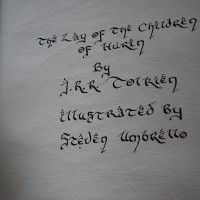 The Lay of the Children
of Húrin
By
J.R.R Tolkien
illustrated By
Steven Umbrello